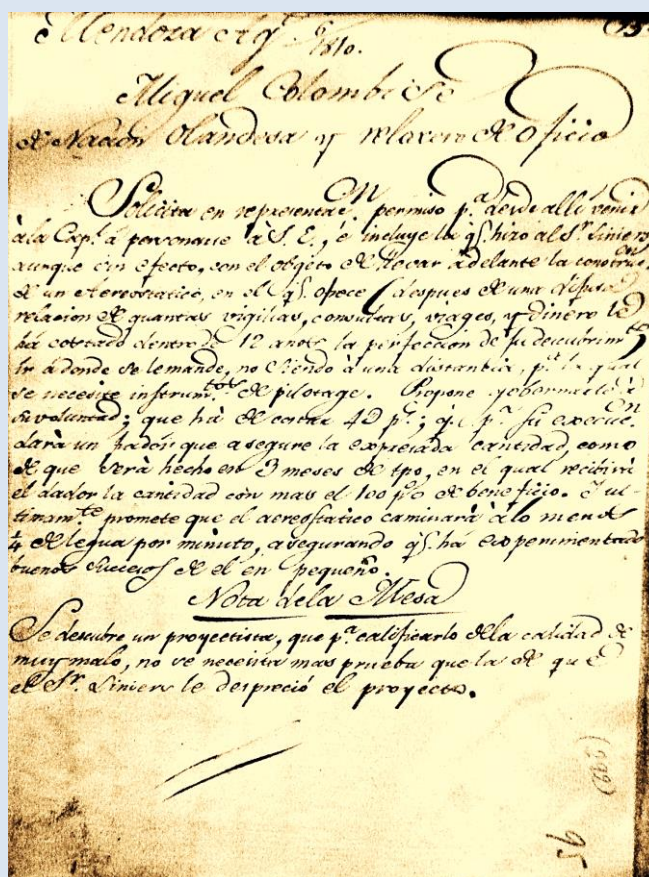 Mendoza 1810.
Miguel Colombise
de Nacion Olandesa y reloxero de oficio
Solicita en representac.on permiso p.a desde alli venir
à la Cap.l à personarse à S. E., è incluye la q.e hizo al S.r Liniers
aunque sin efecto, con el objeto de llevar adelante la construc.on
de un Aereostatico, en el q.e ofrece (despues de una difusa
relacion de quantas vigilias, consultas, viages, y dinero le
hà costado dentro de 12 años la perfeccion de su descubrim.to)
Ir à donde se le mande, no siendo à una distancia, p.a la qual
se necesite instrum.tos de pilotage. Propone gobernarlo à
su voluntad; que hà de costar 4D p.s; q.e p.a su execuc.on
darà un fiador que asegure la expresada cantidad, como
de que serà hecho en 3 meses de tpo, en el qual recibirà
el dador la cantidad con mas el 100 p%o de beneficio. I ul-
timam.te promete que el aereostatico caminarà à lo menos
1/4 de legua por minuto, asegurando q.e hà experimentado
buenos sucesos de el en pequeño.
Nota de la Mesa
Se descubre un proyectista, que p.a calificarlo de la calidad de
muy malo, no se necesita mas prueba que la de que
el S.r Liniers le despreció el proyecto.
(666)
95